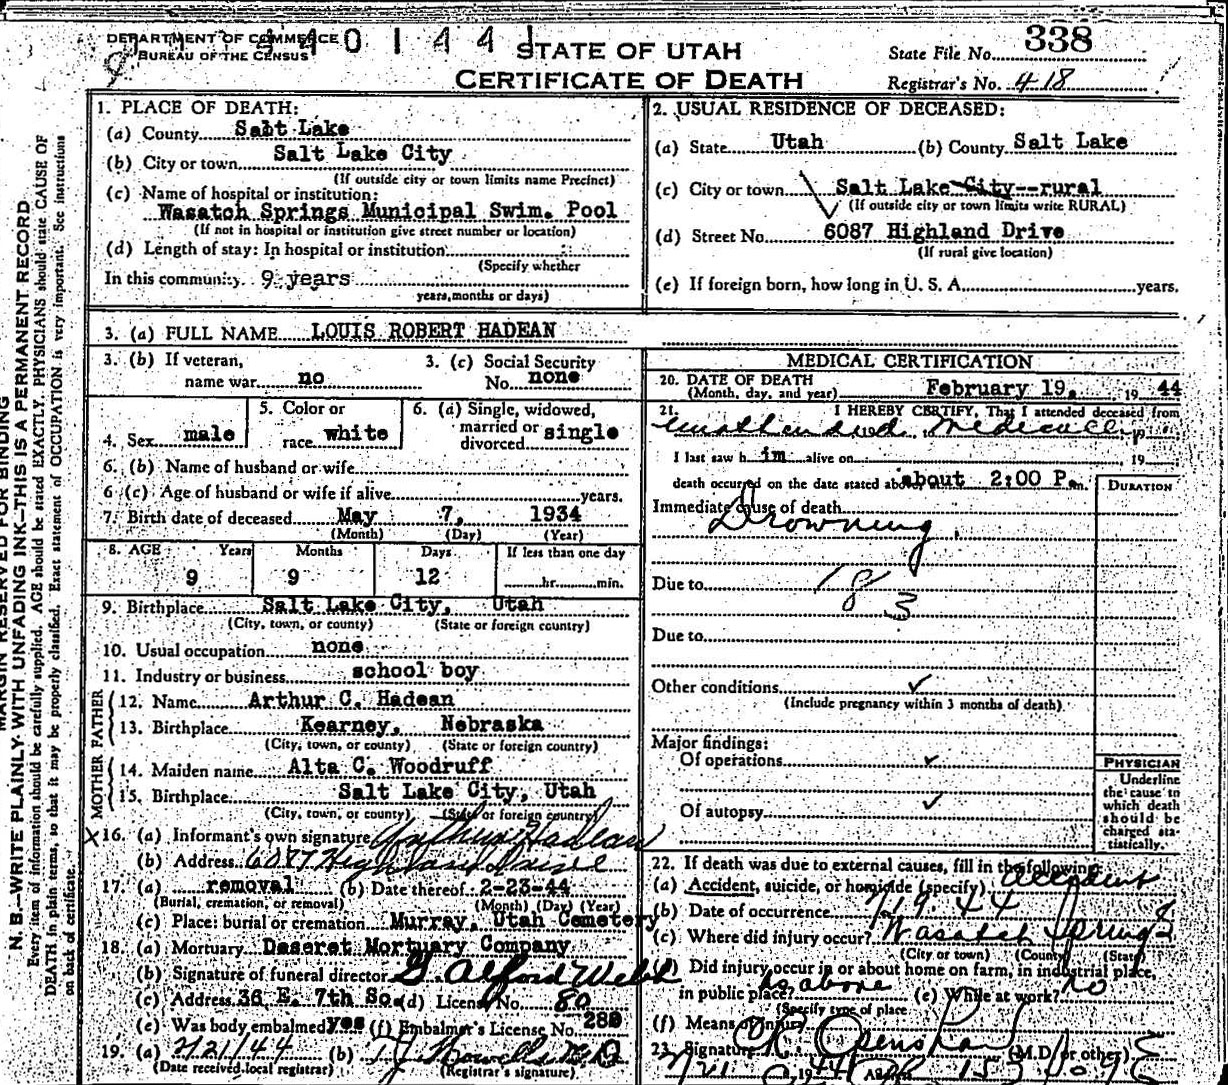 DEPARTMENT OF COMMERCE
BUREAU OF THE CENSUS
440144
STATE OF UTAH
CERTIFICATE OF DEATH
State File No. 338
Registrar's No. 418
MARGIN RESERVED FOR BINDING
N. B.—WRITE PLAINLY WITH UNFADING INK—THIS IS A PERMANENT RECORD
Every item of information should be carefully supplied. AGE should be stated EXACTLY. PHYSICIANS should state CAUSE OF
DEATH in plain terms, so that it may be properly classified. Exact statement of OCCUPATION is very important. See instructions
on back of certificate.
1. PLACE OF DEATH:
(a) County Salt Lake
(b) City or town Salt Lake City
(If outside city or town limits name Precinct)
(c) Name of hospital or institution:
Wasatch Springs Municipal Swim. Pool
(If not in hospital or institution give street number or location)
(d) Length of stay: In hospital or institution
(Specify whether
In this community 9 years
years, months or days)
2. USUAL RESIDENCE OF DECEASED:
(a) State Utah (b) County Salt Lake
(c) City or town Salt Lake City--rural
(If outside city or town limits write RURAL)
(d) Street No. 6087 Highland Drive
(If rural give location)
(e) If foreign born, how long in U. S. A. years.
3. (a) FULL NAME LOUIS ROBERT HADEAN
3. (b) If veteran,
name war no
3. (c) Social Security
No. none
4. Sex male
5. Color or
race white
6. (a) Single, widowed,
married or
divorced single
6. (b) Name of husband or wife
6 (c) Age of husband or wife if alive years.
7. Birth date of deceased May 7, 1934
(Month) (Day) (Year)
8. AGE Years Months Days If less than one day
9 9 12 hr. min.
9. Birthplace Salt Lake City, Utah
(City, town, or county) (State or foreign country)
10. Usual occupation none
11. Industry or business school boy
FATHER
12. Name Arthur C. Hadean
13. Birthplace Kearney, Nebraska
(City, town, or county) (State or foreign country)
MOTHER
14. Maiden name Alta C. Woodruff
15. Birthplace Salt Lake City, Utah
(City, town, or county) (State or foreign country)
X 16. (a) Informant's own signature Arthur Hadean
(b) Address 6087 Highland Drive
17. (a) removal (b) Date thereof 2-23-44
(Burial, cremation, or removal) (Month) (Day) (Year)
(c) Place: burial or cremation Murray, Utah Cemetery
18. (a) Mortuary Deseret Mortuary Company
(b) Signature of funeral director G. Alford Webb
(c) Address 36 E. 7th So. (d) License No. 80
(e) Was body embalmed yes (f) Embalmer's License No. 280
19. (a) 2/21/44 (b)
(Date received local registrar) (Registrar's signature)
MEDICAL CERTIFICATION
20. DATE OF DEATH
(Month, day, and year) February 19, 1944
21. I HEREBY CERTIFY, That I attended deceased from
unattended medically 19
I last saw him alive on 19
death occurred on the date stated above at about 2:00 P.m.
DURATION
Immediate cause of death
Drowning
Due to 183
Due to
Other conditions ✓
(Include pregnancy within 3 months of death)
Major findings:
Of operations ✓
Of autopsy ✓
PHYSICIAN
Underline
the cause to
which death
should be
charged sta-
tistically.
22. If death was due to external causes, fill in the following:
(a) Accident, suicide, or homicide (specify) Accident
(b) Date of occurrence 2/19-44
(c) Where did injury occur? Wasatch Springs
(City or town) (County) (State)
Did injury occur in or about home on farm, in industrial place,
in public place? as above (e) While at work? no
(Specify type of place
(f) Means of injury
23. Signature (M.D. or other)